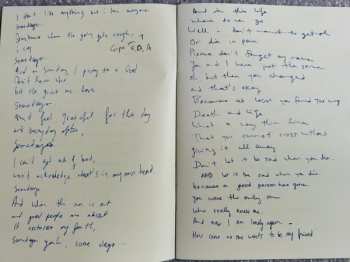 I don't like anything but I love anyone
Somedays
Sometimes when the going gets rough,
I say Capo 4 D, A
Somedays
And on Sunday I pray to a God
Don't know him
but he gives me love
Somedays
And feel grateful for this day
and everyday after,
Somedays
I can't get out of bed,
won't acknowledge what's in my own head.
Somedays
And when the sun is out
and good people are about
It restores my faith,
Somedays yeah, some days -
And in this life
where do we go
Well - don't want to get old
Or die in pain
Please don't forget my name
You and I were just the same
but then you changed
and that's okay
Because at least you found the way
Death and life
What a very thin line
That you cannot cross without
giving it all away
Don't let it be sad when you die
AND let it be sad when you die
because a good person has gone
you were the only one
who really knew me
And now I am lonely again -
How come no one wants to be my friend